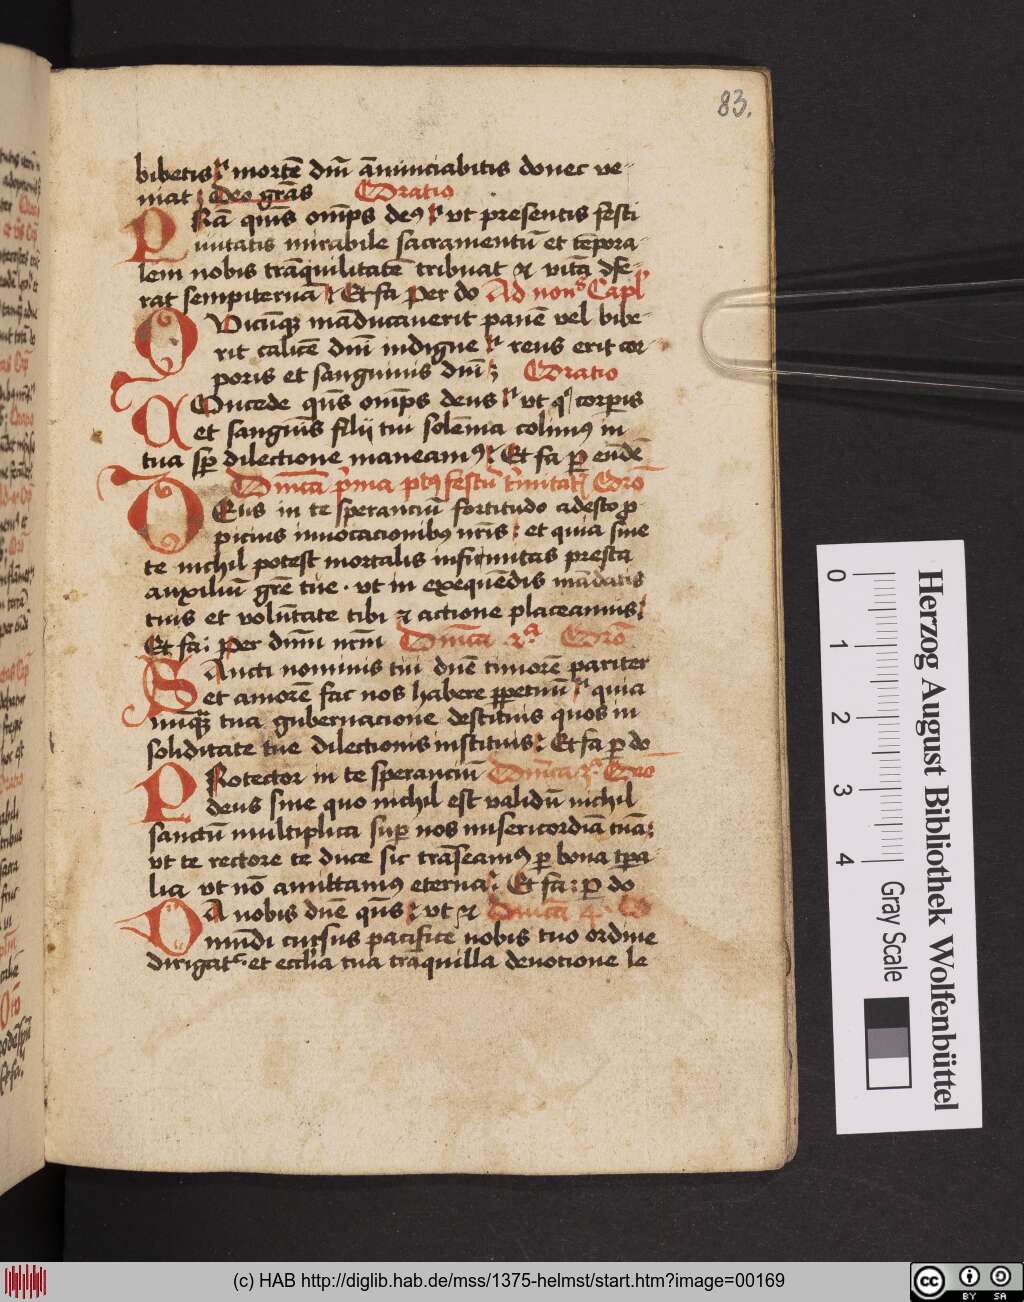 83.
bibetis mortē dn̄i ānunciabitis donec ve-
niat Deo grās Oratio
PRā qūis om̄ps deꝰ vt presentis festi
uitatis mirabile sacramentū et tēpora-
lem nobis trāquilitatē tribuat ⁊ vitā
rat sempiternā Et fa Per do Ad non Capl
QVicūqꝫ māducauerit panē vel bibe-
rit calicē dn̄i indigne reus erit cor-
poris et sanguinis dn̄i Oratio
COncede qūs om̄ps deus vt qͥ corꝑis
et sanguīs filij tui solēnia colimꝰ in
tua sꝑ dilectione maneamꝰ Et fa ꝑ eūdē
Dn̄ica pͥma pꝰ festū tͥnitatꝭ Oro
DEus in te sperancium fortitudo adesto ꝓ
picius inuocacionibꝰ nr̄is et quia sine
te nichil potest mortalis infirmitas presta
auxiliū grē tue vt in exequēdis mādatis
tuis et volūtate tibi ⁊ actione placeamus
Et fa Per dn̄m nr̄m Dn̄ica 2ᵃ Oro
SAncti nominis tui dn̄e timorē pariter
et amorē fac nos habere ꝑpetuū quia
nūqꝫ tua gubernacione destituis quos in
soliditate tue dilectionis instituis Et fa ꝑ do
PRotector in te sperancium Dn̄ica 3ᵃ Oro
deus sine quo nichil est validū nichil
sanctū multiplica suꝑ nos misericordiā tuā
vt te rectore te duce sic trāseamꝰ ꝑ bona tꝑa-
lia vt nō amittamꝰ eterna Et fa ꝑ do
DA nobis dn̄e qūs vt ⁊ Dn̄ica 4 O
mūdi cursus pacifice nobis tuo ordine
dirigat et eccl̄ia tua trāquilla deuotione le
Herzog August Bibliothek Wolfenbüttel
0 1 2 3 4
Gray Scale
(c) HAB http://diglib.hab.de/mss/1375-helmst/start.htm?image=00169
cc BY SA